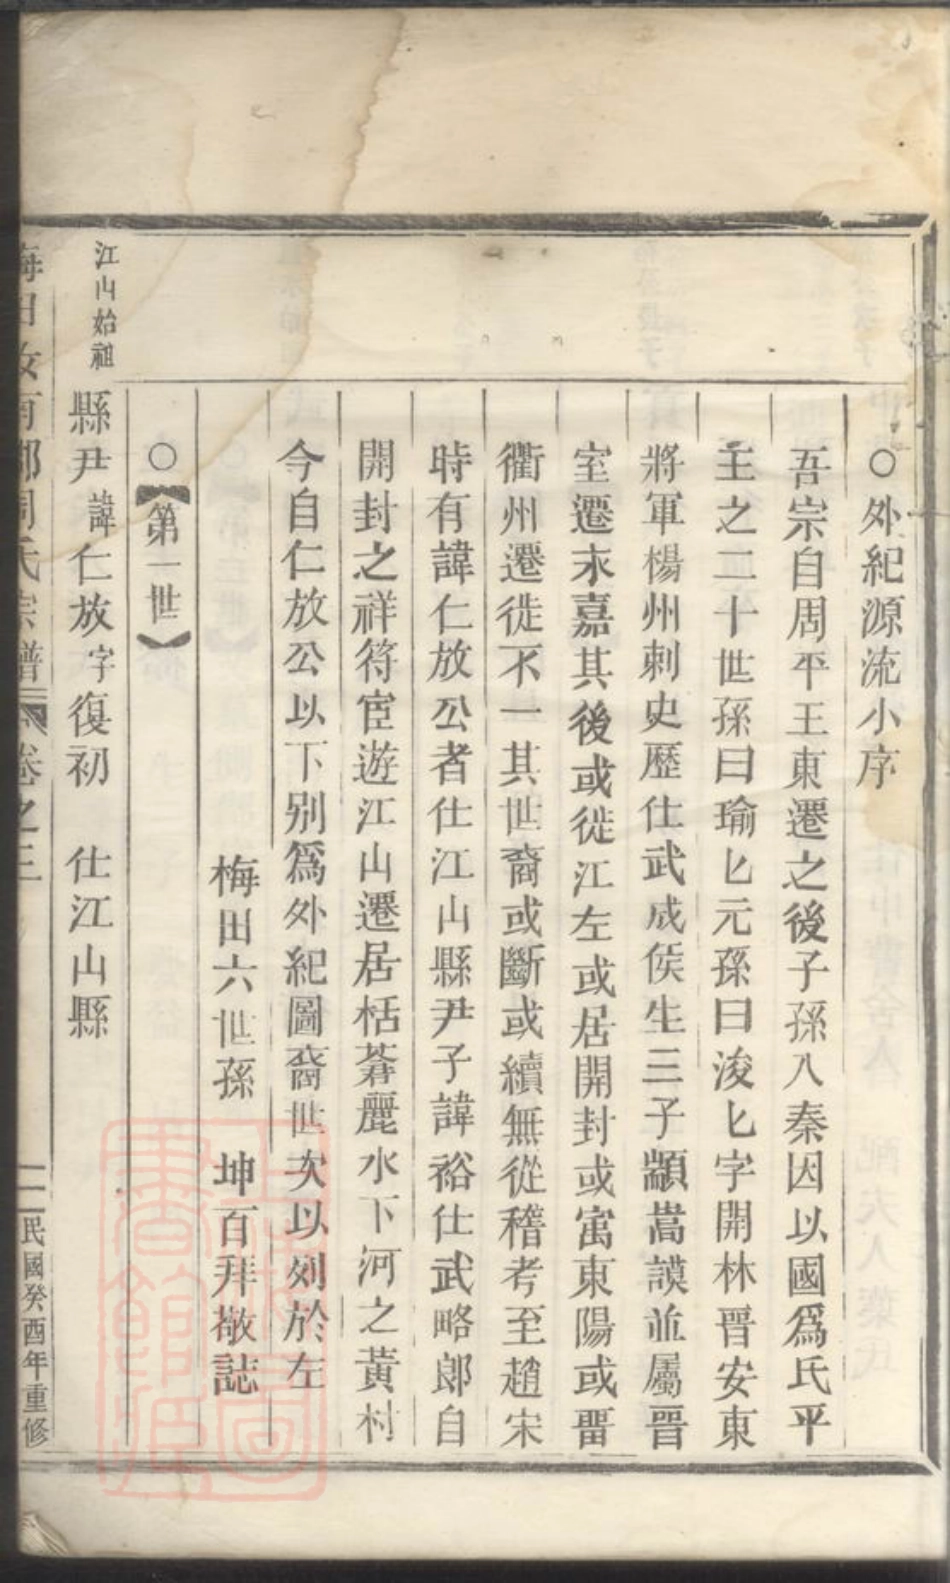 ○外紀源流小序
吾宗自周平王東遷之後子孫入秦因以國爲氏平
王之二十世孫曰瑜匕元孫曰浚匕字開林晉安東
將軍楊州刺史歷仕武成侯生三子顗嵩謨並屬晉
室遷永嘉其後或徙江左或居開封或寓東陽或畱
衢州遷徙不一其世裔或斷或續無從稽考至趙宋
時有諱仁放公者仕江山縣尹子諱裕仕武略郎自
開封之祥符宦遊江山遷居栝蒼麗水下河之黃村
今自仁放公以下别爲外紀圖裔世次以列於左
梅田六世孫 坤百拜敬誌
○【第一世】
江山始祖
縣尹諱仁放字復初 仕江山縣
梅田汝南郡周氏宗譜 卷之三 一 民國癸酉年重修